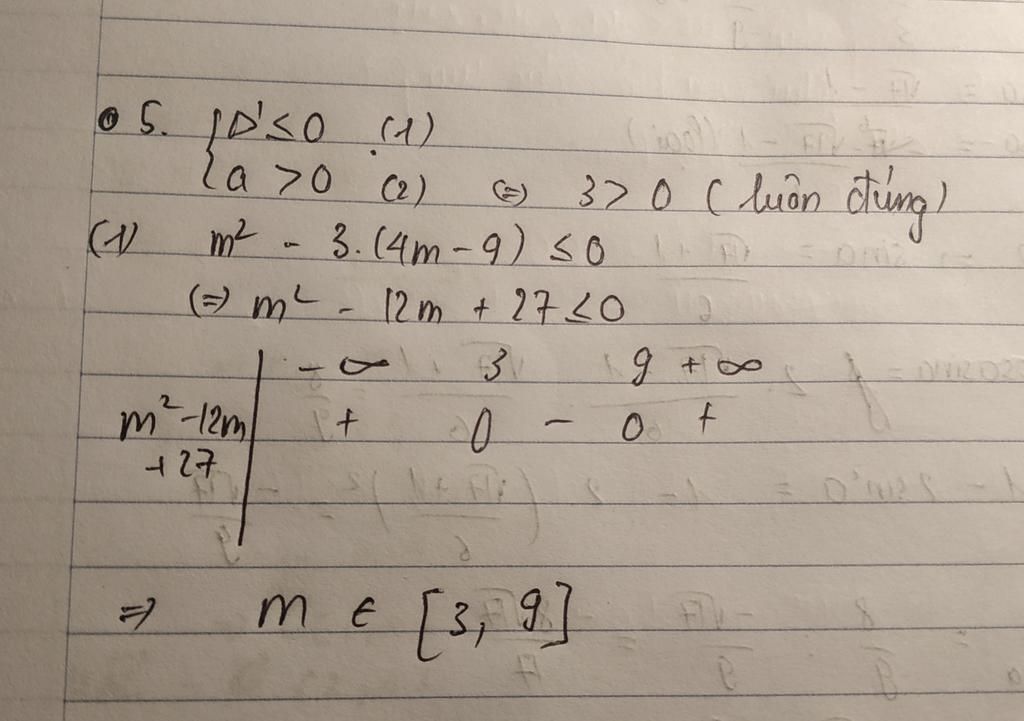 5. { Δ' ≤ 0 (1)
a > 0 (2) ⇔ 3 > 0 (luôn đúng)
(1) m² - 3.(4m - 9) ≤ 0
(=) m² - 12m + 27 ≤ 0
-∞ 3 9 +∞
m² - 12m + 0 - 0 +
+27
⇒ m ∈ [3, 9]